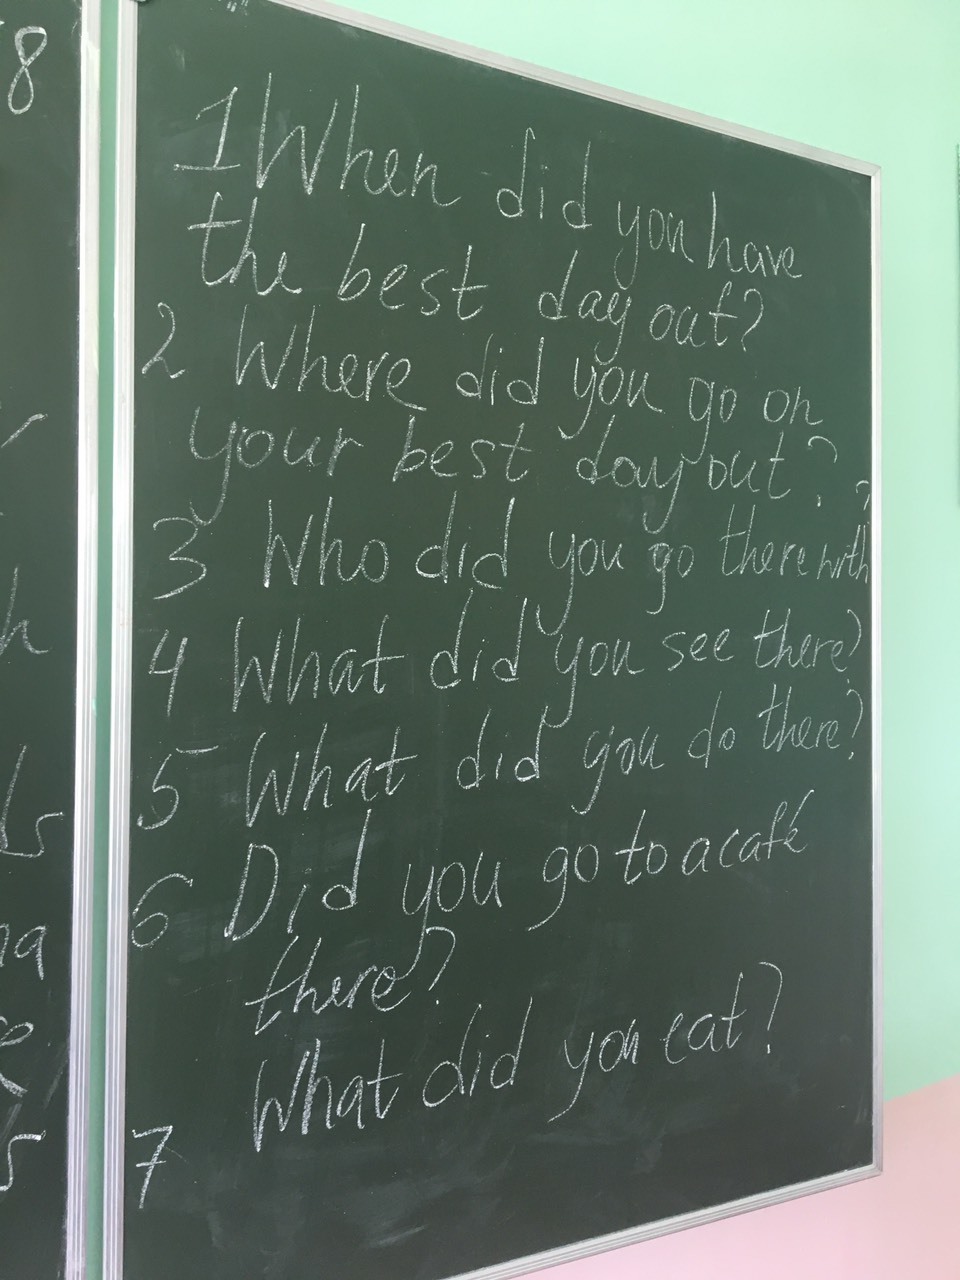 8
1 When did you have
the best day out?
2 Where did you go on
your best day out?
3 Who did you go there with?
4 What did you see there?
5 What did you do there?
6 Did you go to a café
there?
What did you eat?
7